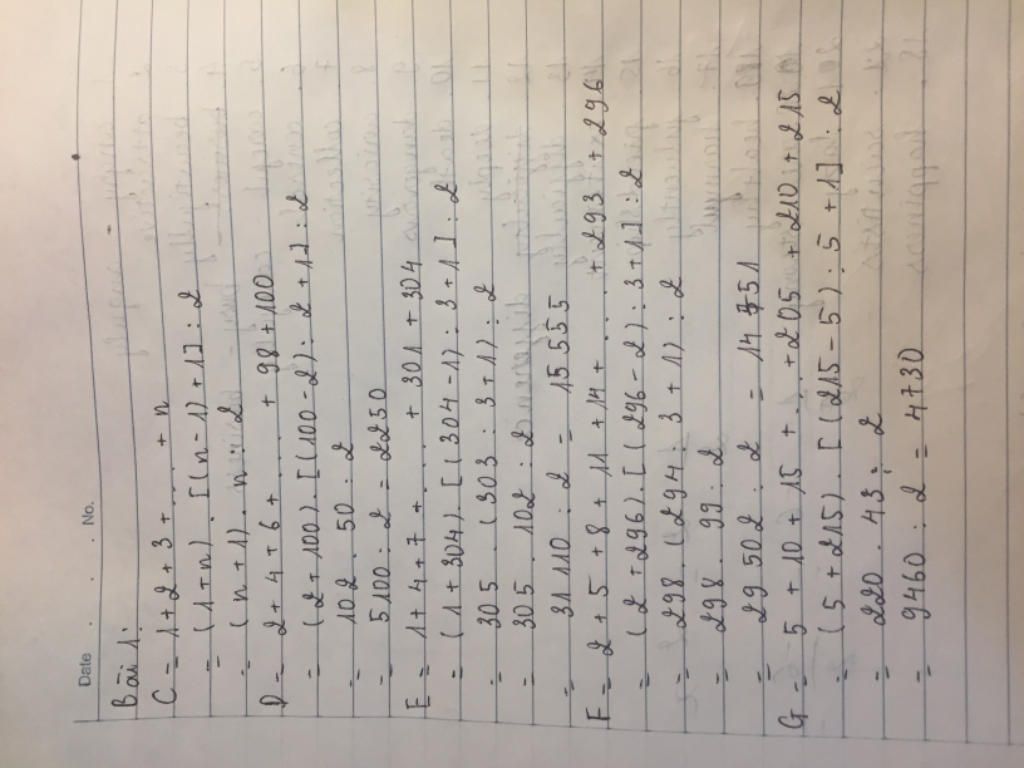 Date . . No.
Bài 1:
C = 1 + 2 + 3 + . . . + n
= (1 + n) . [(n - 1) + 1] : 2
= (n + 1) . n : 2
D = 2 + 4 + 6 + . . . + 98 + 100
= (2 + 100) . [(100 - 2) : 2 + 1] : 2
= 102 . 50 : 2
= 5100 : 2 = 2250
E = 1 + 4 + 7 + . . . + 301 + 304
= (1 + 304) . [(304 - 1) : 3 + 1] : 2
= 305 . (303 : 3 + 1) : 2
= 305 . 102 : 2
= 31110 : 2 = 15555
F = 2 + 5 + 8 + 11 + 14 + . . . + 293 + 296
= (2 + 296) . [(296 - 2) : 3 + 1] : 2
= 298 . (294 : 3 + 1) : 2
= 298 . 99 : 2
= 29502 : 2 = 14751
G = 5 + 10 + 15 + . . + 205 + 210 + 215
= (5 + 215) . [(215 - 5) : 5 + 1] : 2
= 220 . 43 : 2
= 9460 : 2 = 4730